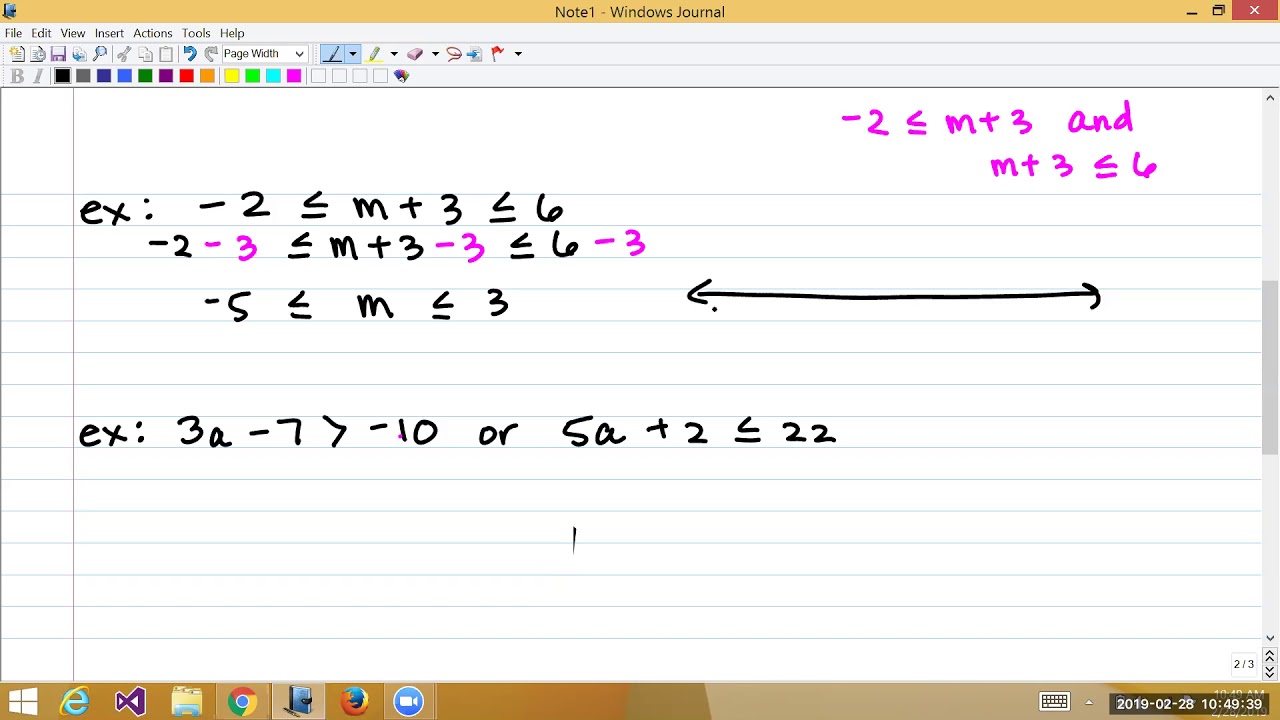 Note1 - Windows Journal
File Edit View Insert Actions Tools Help
Page Width
B I
-2 ≤ m+3 and
m+3 ≤ 6
ex: -2 ≤ m+3 ≤ 6
-2 -3 ≤ m+3 -3 ≤ 6 -3
-5 ≤ m ≤ 3
ex: 3a -7 > -10 or 5a + 2 ≤ 22
2 / 3
2019-02-28 10:49:39